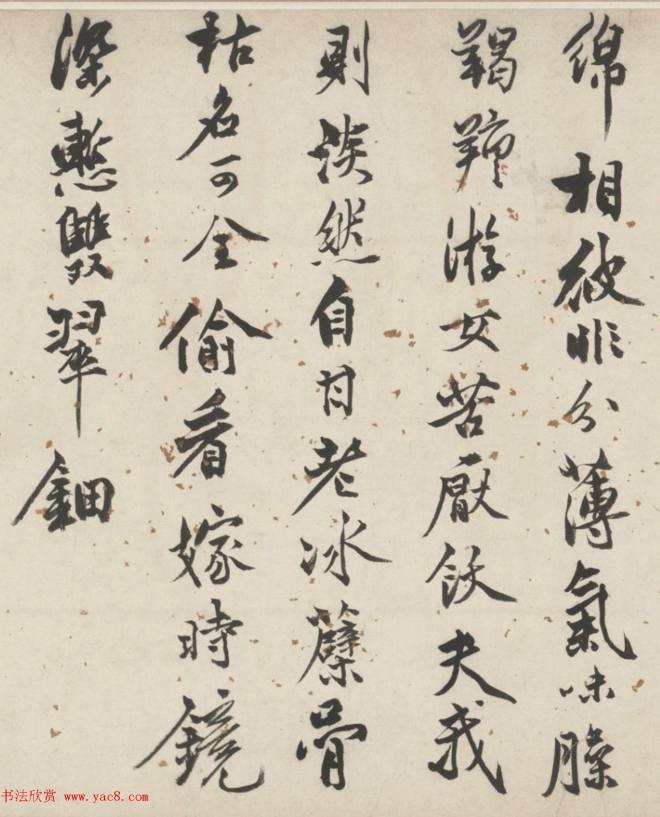 綿相彼非分薄氣味臊
羯羶游女苦厭飫夫我
則淡然自甘老冰蘗骨
枯名可全偷看嫁時鏡
深慙雙翠鈿
书法欣赏 www.yac8.com